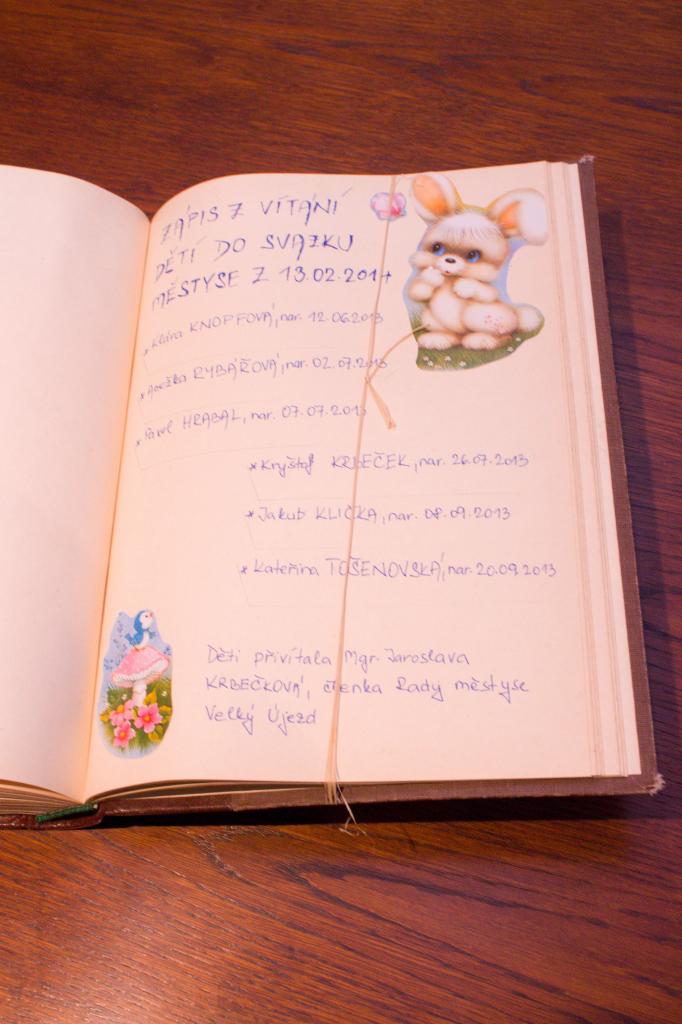 ZÁPIS Z VÍTÁNÍ
DĚTÍ DO SVAZKU
MĚSTYSE Z 13.02.2014
* Klára KNOPFOVÁ, nar. 12.06.2013
* Anežka RYBÁŘOVÁ, nar. 02.07.2013
* Pavel HRABAL, nar. 07.07.2013
* Kryštof KRBEČEK, nar. 26.07.2013
* Jakub KLIČKA, nar. 08.09.2013
* Kateřina TOŠENOVSKÁ, nar. 20.09.2013
Děti přivítala Mgr. Jaroslava
KRBEČKOVÁ, členka Rady městyse
Velký Újezd